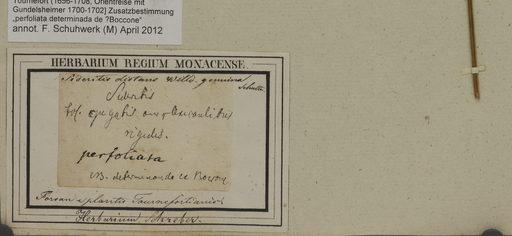 Tournefort (1656-1708, Orientreise mit
Gundelsheimer 1700-1702] Zusatzbestimmung
„perfoliata determinada de ?Boccone“
annot. F. Schuhwerk (M) April 2012
HERBARIUM REGIUM MONACENSE.
Sideritis distans Willd. genuina
Sideritis
fol.
rigidis.
perfoliata
determinanda ex
Forsan e plantis Tournefortianis
Herbarium Schreber.